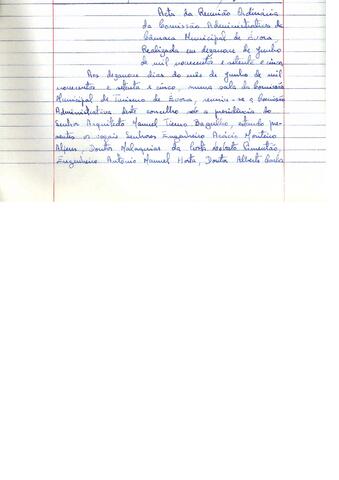 Acta da Reunião Ordinária
da Comissão Administrativa da
Câmara Municipal de Évora,
Realizada em dezanove de Junho
de mil novecentos e setenta e cinco
Aos dezanove dias do mês de Junho de mil
novecentos e setenta e cinco, numa sala da Comissão
Municipal de Turismo de Évora, reuniu-se a Comissão
Administrativa deste concelho sob a presidência do
Senhor Arquitecto Manuel Bagulho, estando pre-
sentes os vogais Senhores Engenheiro Acácio Monteiro
Doutor Malaquias da Costa Pimentão,
Engenheiro António Manuel Horta, Doutor Alberto Carlos